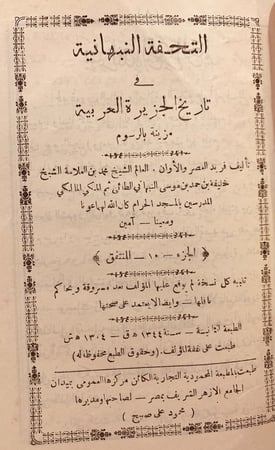 التحفة النبهانية
في
تاريخ الجزيرة العربية
مزينة بالرسوم
تأليف فريد العصر والأوان ، العالم الشيخ محمد بن العلامة الشيخ
خليفة بن حمد بن موسى النبهاني الطائي ثم المكي المالكي
المدرسين بالمسجد الحرام كان الله لهما عونا
ومعينا — آمين
﴿ الجزء — ١٠ — المنتفق ﴾
تنبيه كل نسخة لم يوقع عليها المؤلف تعد مسروقة ويحاكم
ناقلها — وايضا لا يعتمد على صحتها
الطبعة الثانية — سنة ١٣٤٤ ه ق — ١٣٠٤ ه ش
طبعت على نفقة المؤلف . (وحقوق الطبع محفوظة له)
طبعت بالمطبعة المحمودية التجارية الكائن مركزها العمومي بميدان
الجامع الازهر الشريف بمصر — لصاحبها ومديرها
( محمود علي صبيح )